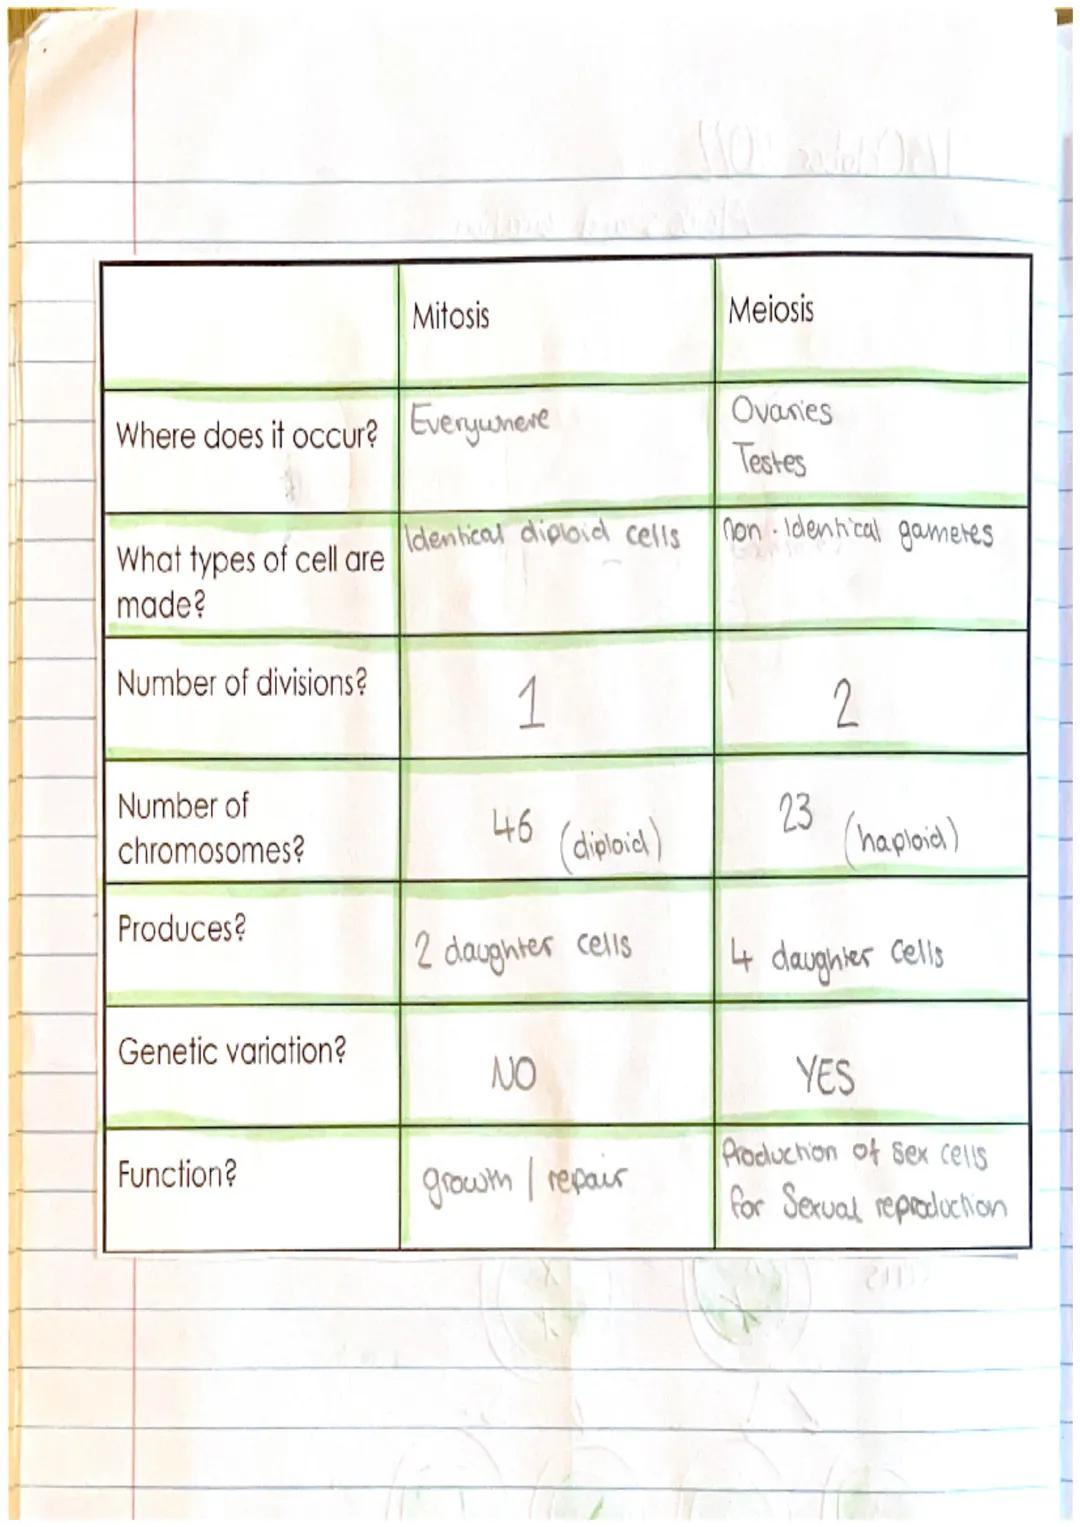 Mitosis
Meiosis
Where does it occur?
Everywhere
Ovaries
Testes
What types of cell are
made?
Identical diploid cells
non - Identical gametes
Number of divisions?
1
2
Number of
chromosomes?
46 (diploid)
23 (haploid)
Produces?
2 daughter cells
4 daughter cells
Genetic variation?
NO
YES
Function?
growth / repair
Production of sex cells
for Sexual reproduction